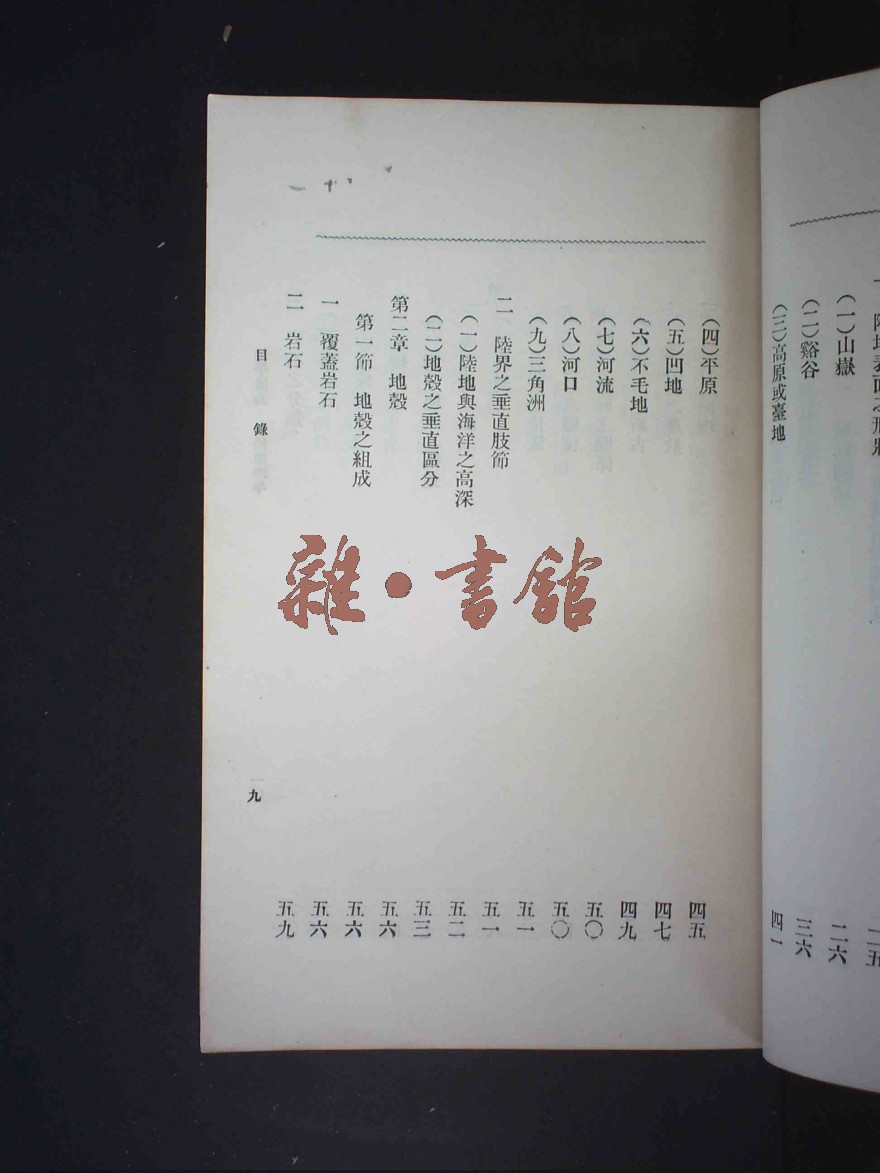 (一)山嶽 二六
(二)谿谷 三六
(三)高原或臺地 四一
(四)平原 四五
(五)凹地 四七
(六)不毛地 四九
(七)河流 五〇
(八)河口 五〇
(九)三角洲 五一
二 陸界之垂直肢節 五一
(一)陸地與海洋之高深 五二
(二)地殼之垂直區分 五三
第二章 地殼 五六
第一節 地殼之組成 五六
一 覆蓋岩石 五六
二 岩石 五九
目錄
九
雜·書館